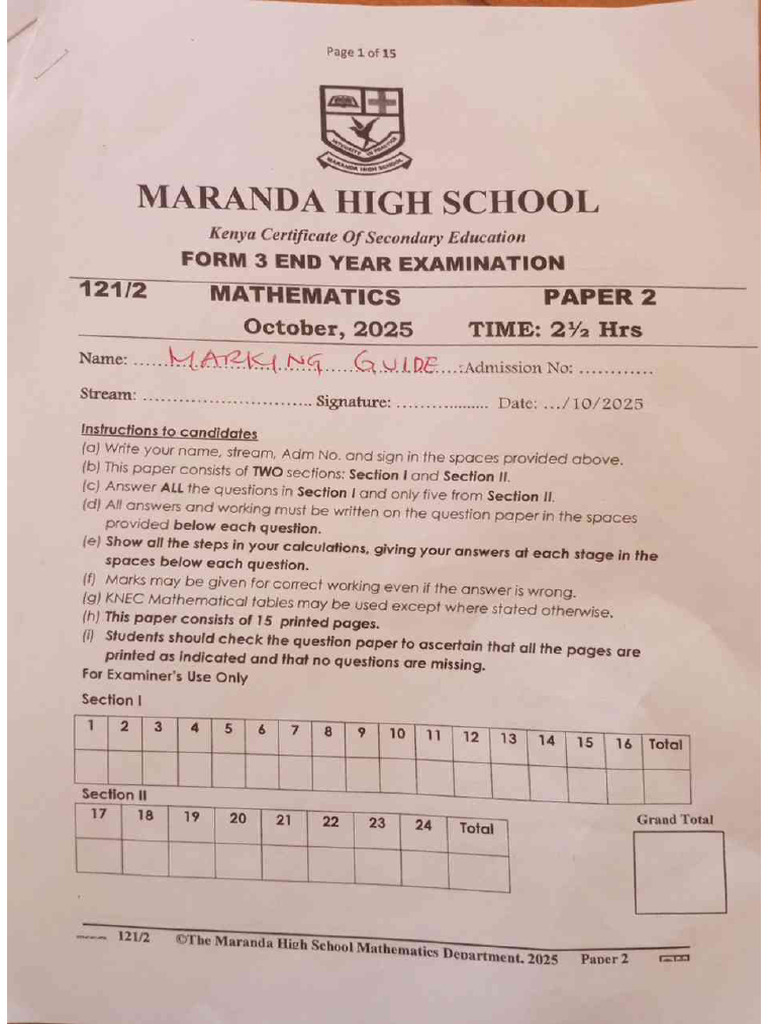 Page 1 of 15
INTEGRITY IN PRACTICE
MARANDA HIGH SCHOOL
MARANDA HIGH SCHOOL
Kenya Certificate Of Secondary Education
FORM 3 END YEAR EXAMINATION
121/2 MATHEMATICS PAPER 2
October, 2025 TIME: 2½ Hrs
Name: ......MARKING GUIDE....:Admission No: ............
Stream: ............................ Signature: ................... Date: .../10/2025
Instructions to candidates
(a) Write your name, stream, Adm No. and sign in the spaces provided above.
(b) This paper consists of TWO sections: Section I and Section II.
(c) Answer ALL the questions in Section I and only five from Section II.
(d) All answers and working must be written on the question paper in the spaces
provided below each question.
(e) Show all the steps in your calculations, giving your answers at each stage in the
spaces below each question.
(f) Marks may be given for correct working even if the answer is wrong.
(g) KNEC Mathematical tables may be used except where stated otherwise.
(h) This paper consists of 15 printed pages.
(i) Students should check the question paper to ascertain that all the pages are
printed as indicated and that no questions are missing.
For Examiner's Use Only
Section I
1 2 3 4 5 6 7 8 9 10 11 12 13 14 15 16 Total
Section II
17 18 19 20 21 22 23 24 Total
Grand Total
121/2 ©The Maranda High School Mathematics Department. 2025 Paper 2